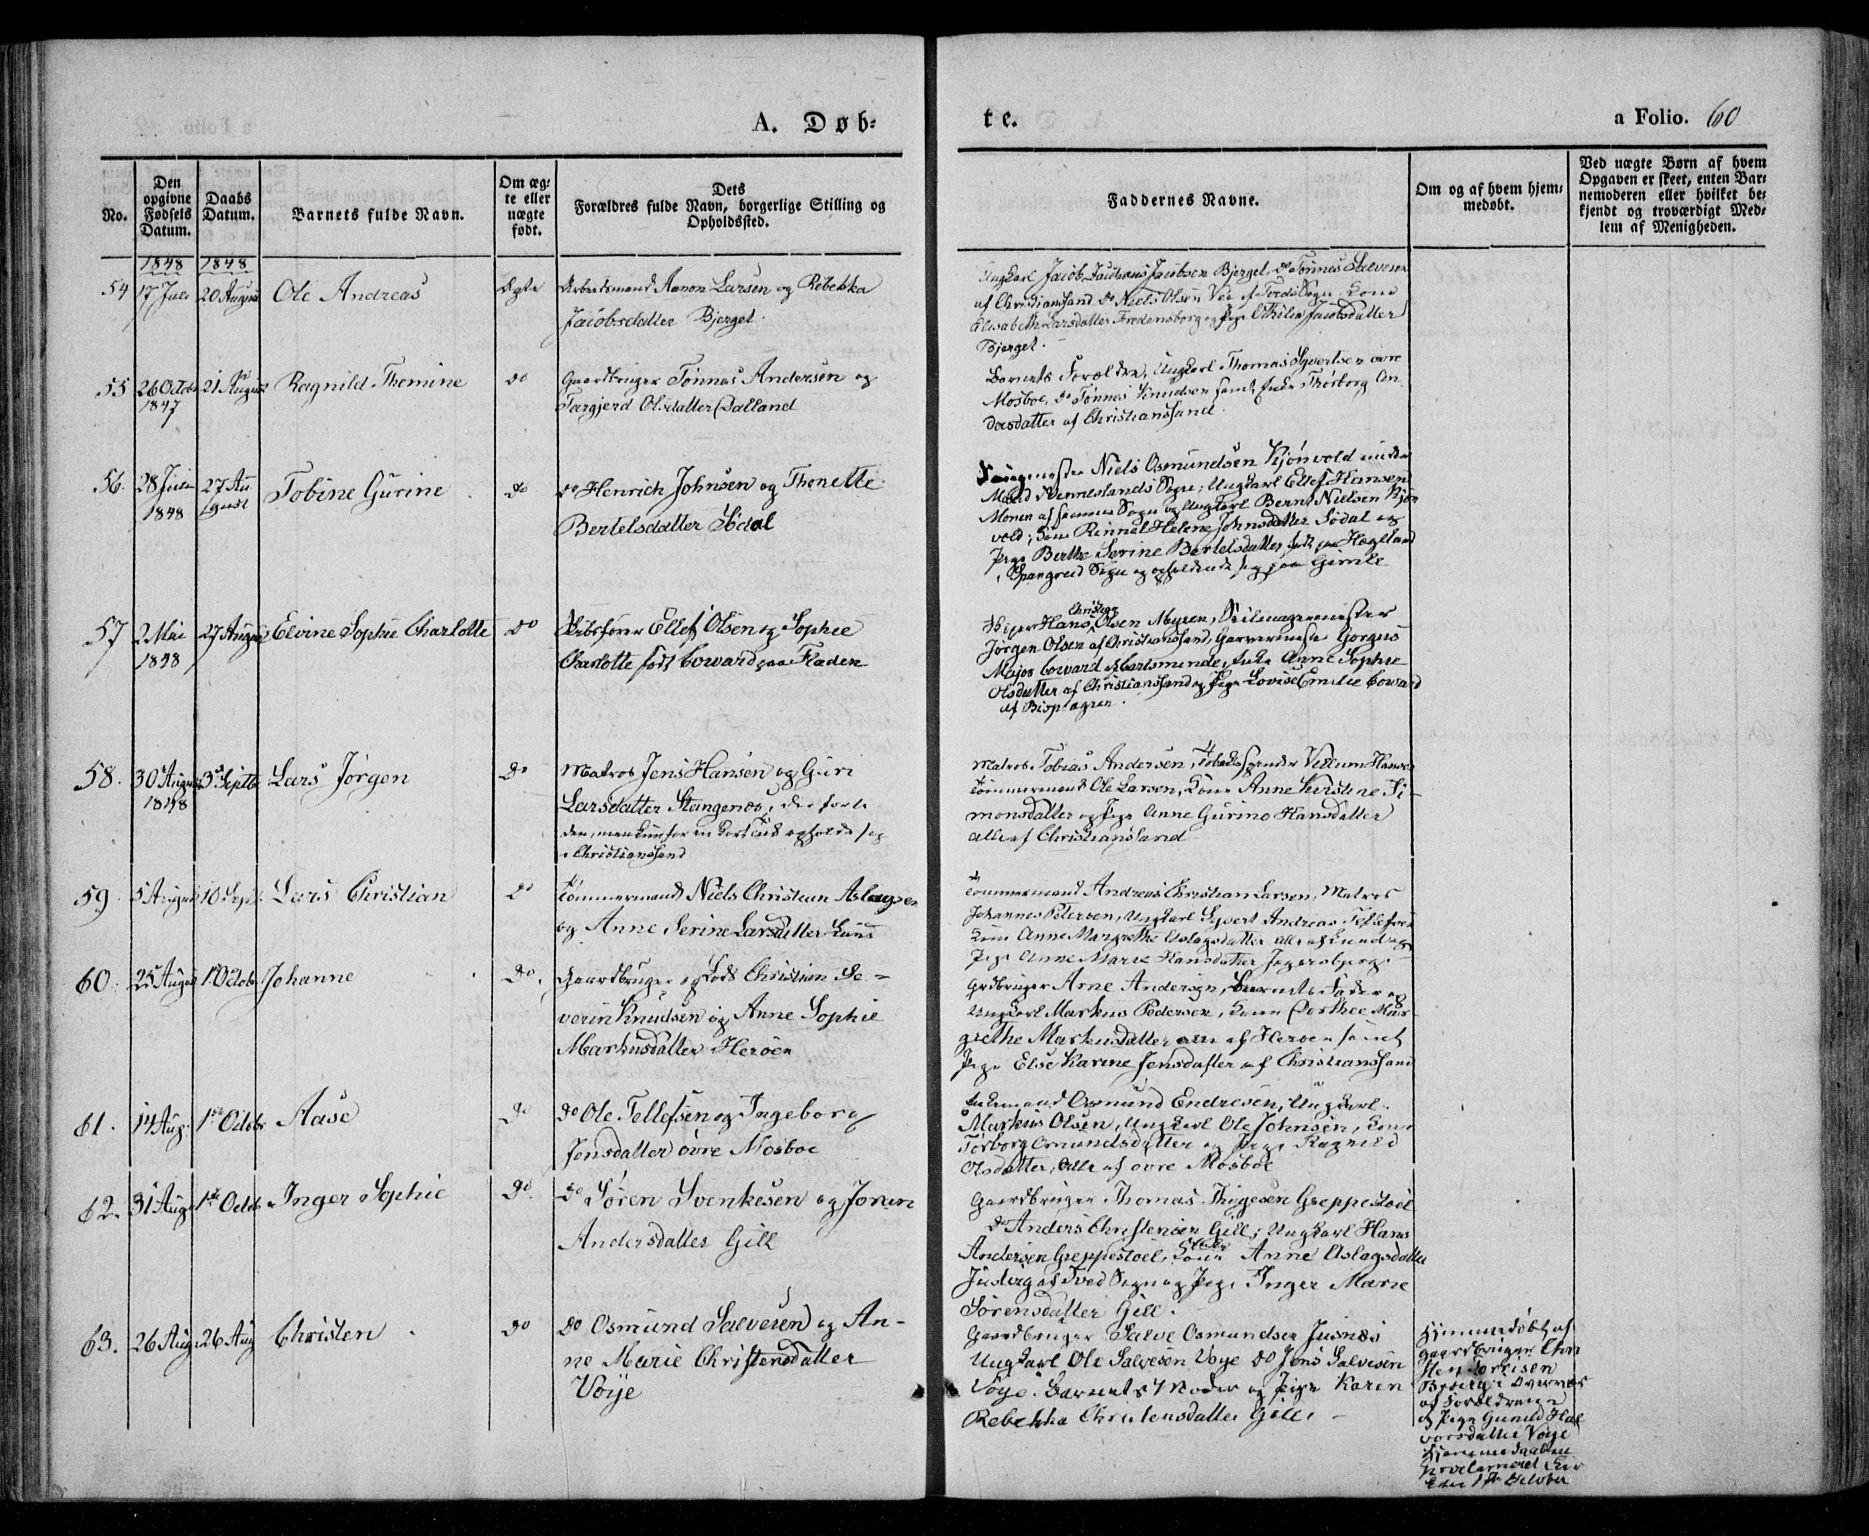 A. Døb-
te.
a Folio. 60
No.
Den opgivne Fødsels Datum.
Daabs Datum.
Barnets fulde Navn.
Om æg-
te eller
uægte
født.
Dets
Forældres fulde Navn, borgerlige Stilling og
Opholdssted.
Faddernes Navne.
Om og af hvem hjem-
medøbt.
Ved uægte Børn af hvem
Opgaven er skeet, enten Bar-
nemoderen eller hvilket be-
kjendt og troværdigt Med-
lem af Menigheden.
1848 1848
54 17 Juli 20 August Ole Andreas Ægte Arbeidsmand Aanon Larsen og Rebekka
Jacobsdatter Bjerget.
Ungkarl Jacob Jacobsen Bjerget, do Tønnes Salvesen
af Christiansand do Niels Olsen Vee af Sogn, Kone
Elisabeth Larsdatter Fredensborg og Pige Jacobsdatter
Bjerget.
55 26 Octob 21 August Ragnild Thomine do Gaardbruger Tønnes Andersen og
1847
Targjerd Olsdatter Dalland
Barnets Forældre, Ungkarl Thomas Syvertsen øvre
Mosboe, do Tønnes Knudsen samt Enke Thorborg An-
dersdatter af Christianssand.
56. 28 Juli 27 Au Tobine Gurine do do Henrich Johnsen og Thonette
1848 gust
Bertelsdatter Sødal
Niels Osmundsen Kjønvold
Vennesland Sogn; Ungkarl Ellef Hansen
Monen af samme Sogn og Ungkarl Bernt Nielsen Kjøn
vold; Kone Helene Johnsdatter Sødal og
Pige Berthe Serine Bertelsdatter, født paa Hægeland
Sogn og opholdende sig paa Gimle
57 2 Mai 27 August Elvine Sophie Charlotte do Skibsfører Ellef Olsen og Sophie
1848
Charlotte født Coward paa Fladen
Hans Christian Olsen Myren, Seilmagermester
Jørgen Olsen af Christianssand, Garvermester Gorgus
Major Coward Marlsminde, Enke Anne Sophie
Olsdatter af Christianssand og Pige Lovise Emelie Coward
af Bispeagren.
58. 30 August 3 Septbr Lars Jørgen do Matros Jens Hansen og Guri
1848
Larsdatter Stangenæs, der
opholde sig
i Christianssand
Matros Tobias Andersen, Hansen
Tømmermand Ole Larsen, Kone Anne Kirstine Si-
monsdatter og Pige Anne Gurine Hansdatter
alle af Christianssand
59. 5 August 10 Sept. Lars Christian do Tømmermand Niels Christian Aslagsen
og Anne Serine Larsdatter Lund
Tømmermand Andreas Christian Larsen, Matros
Johannes Petersen, Ungkarl Syvert Andreas Tellefsen
Kone Anne Margrethe Aslagsdatter alle af Lund og
Pige Anne Marie Hansdatter Jegersberg.
60. 25 August 1 Octob Johanne do. Gaardbruger og Lods Christian Se-
verin Knudsen og Anne Sophie
Markusdatter Herøen
Grdbruger Arne Andersen, Barnets Fader og
Ungkarl Markus Pedersen, Kone Dorthee Mar-
grethe Markusdatter alle af Herøen samt
Pige Else Karine Jensdatter af Christianssand
61. 14 Aug. 1ste Octob Aase do do Ole Tellefsen og Ingeborg
Jensdatter øvre Mosboe
Osmund Endresen, Ungkarl
Markus Olsen, Ungkarl Ole Johnsen, Kone
Torborg Osmundsdatter og Pige Ragnild
Olsdatter, alle af øvre Mosboe
62. 31 Aug 1ste Octob Inger Sophie do. do Søren Svenkesen og Jorun
Andersdatter Gill
Gaardbruger Thomas Thygesen Greppestøel
do Anders Christensen Gill, Ungkarl Hans
Andersen Greppestoel, Kone Anne Aslagsdatter
af Tved Sogn og Pige Inger Marie
Sørensdatter Gill.
63. 26 Aug 26 Aug Christen do do Osmund Salvesen og An-
ne Marie Christensdatter
Voije
Gaardbruger Salve Osmundsen Jusnæs
Ungkarl Ole Salvesen Voye do Jens Salvesen
Voye, Barnets Moder og Pige Karen
Rebekka Christensdatter Gill.
Hjemmedøbt af
Gaardbruger Chri
sten
af Forældrene
og Pige Gunild Hal
vorsdatter Voye
Hjemmedaaben
1ste October